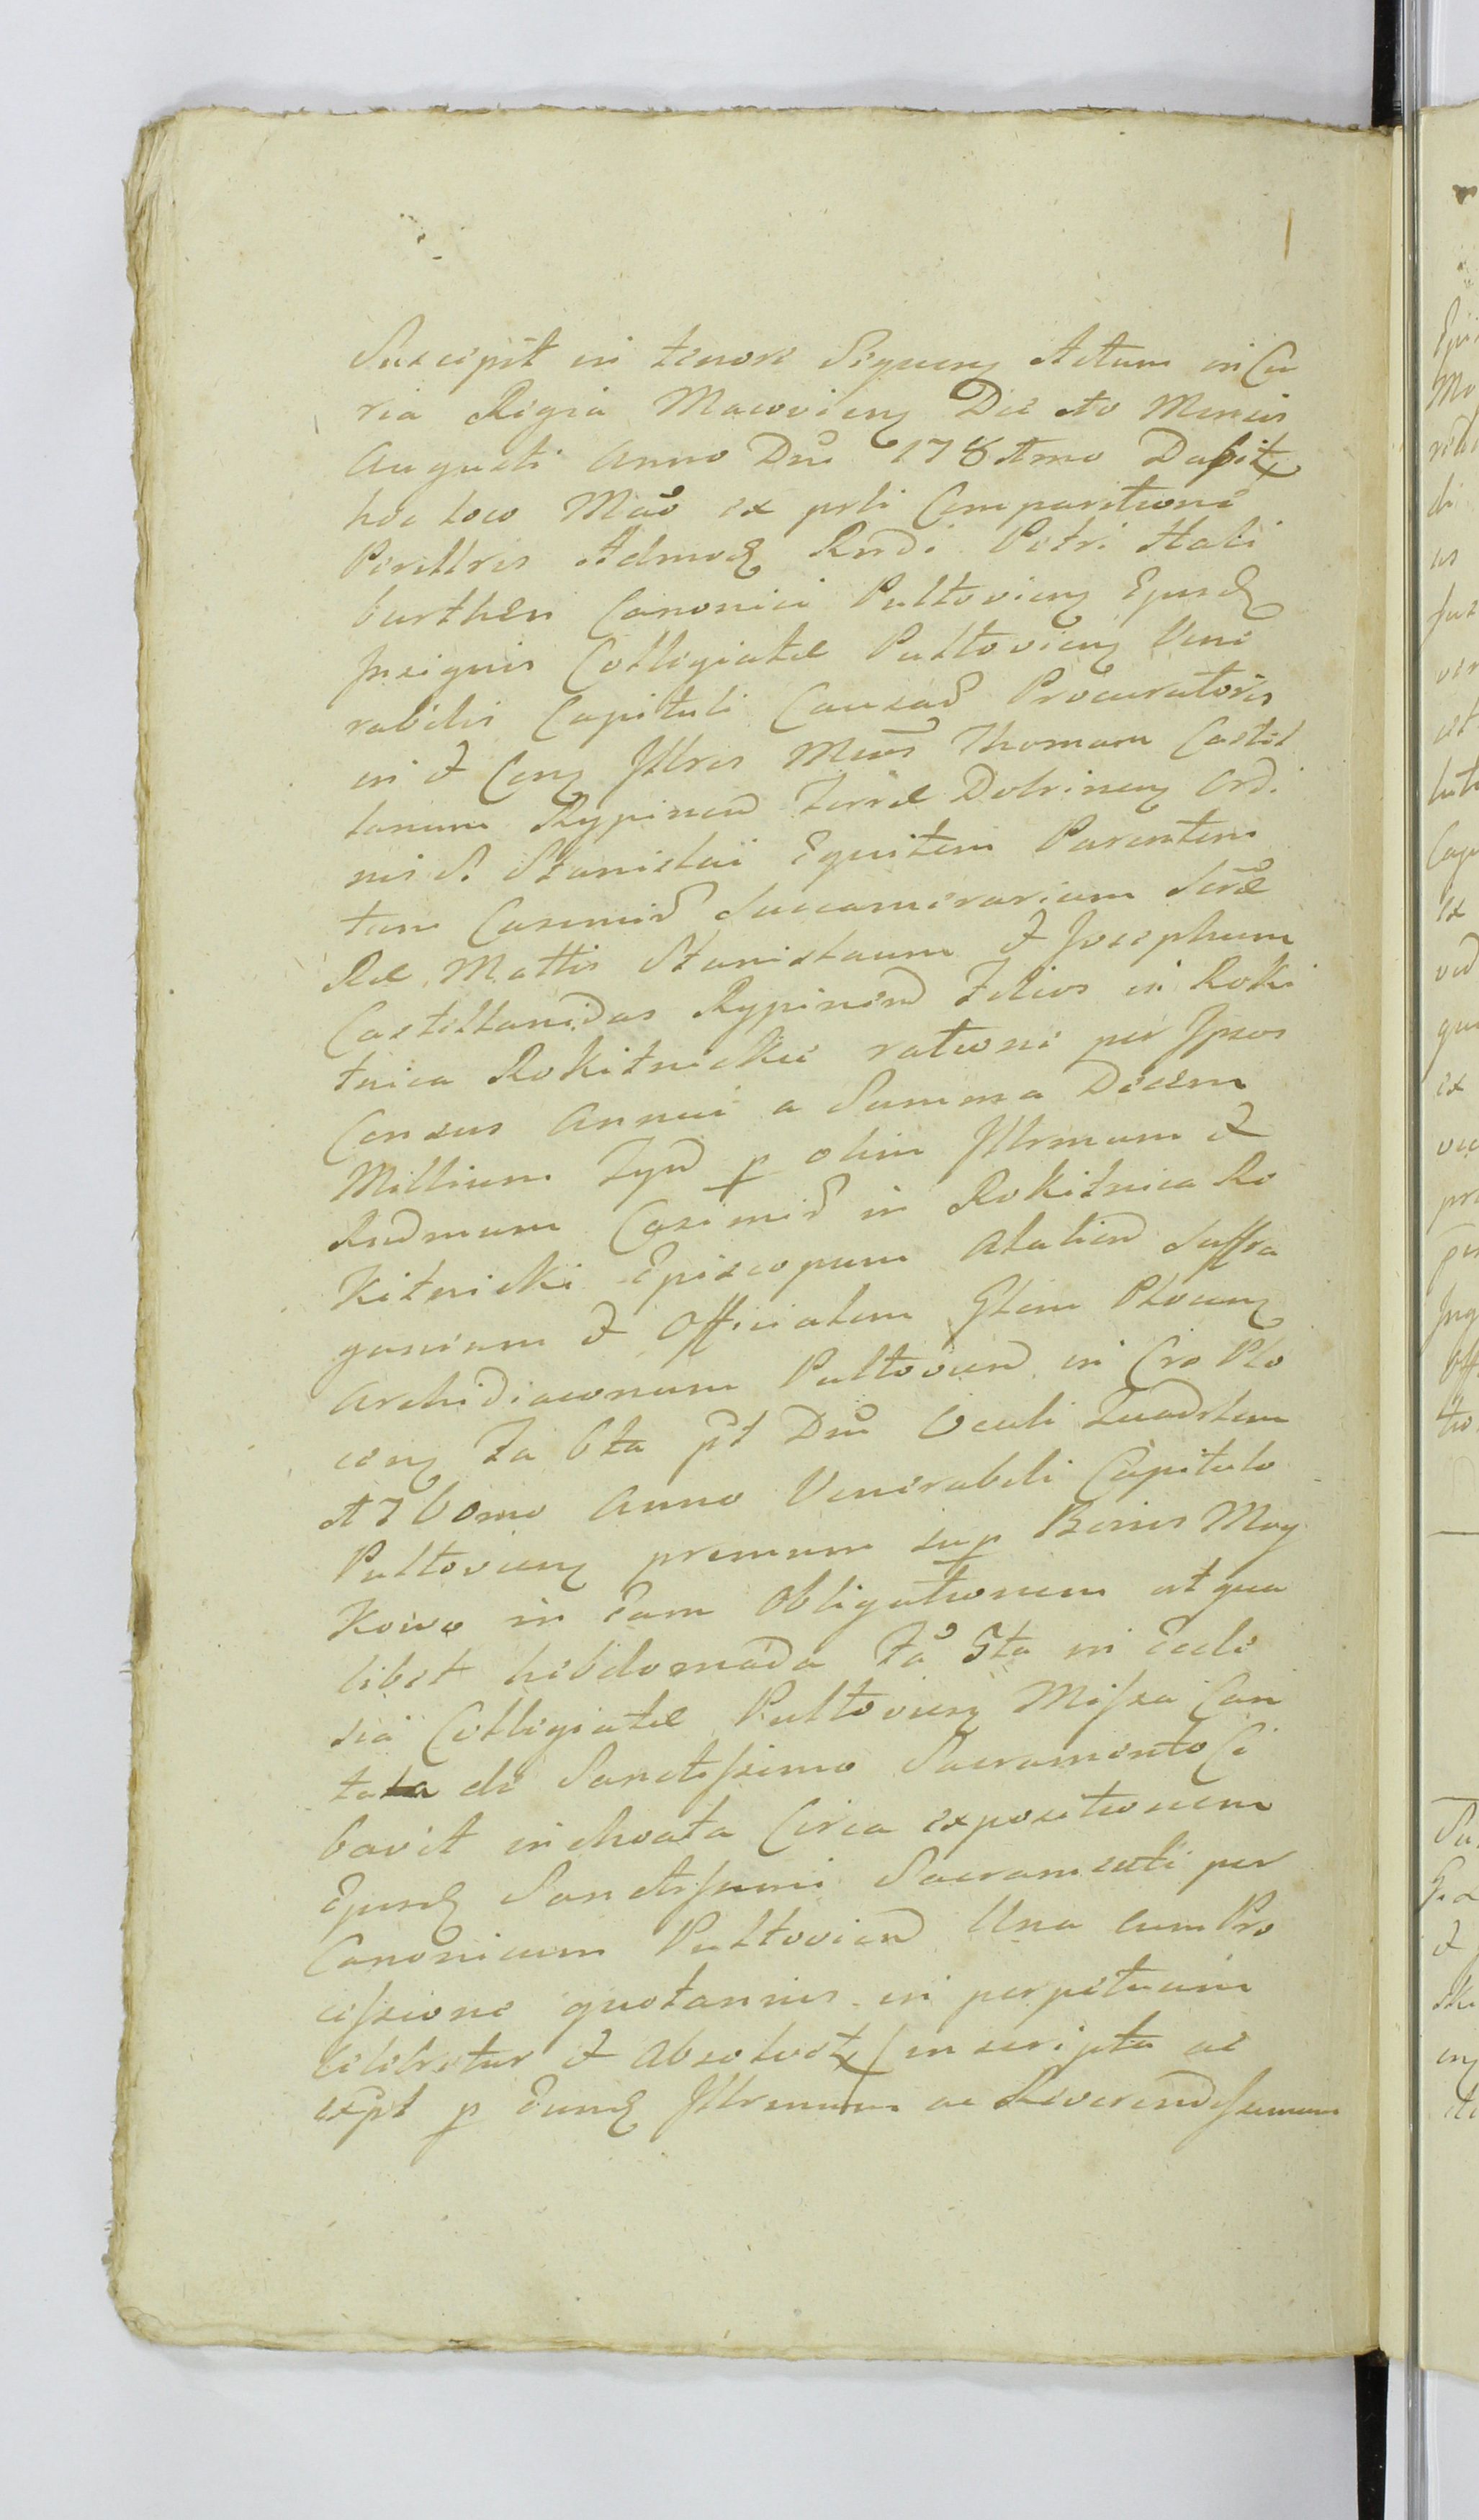 Suscepit in tenore Sequenz Actum in Cu
ria Regia Macoviens Die 4to Mensis
Augusti Anno Dni 178 Amo Dabitx
hoc loco Mco ex prti Comparitione
Perillris Admod Rndi Petri Hali
burthen Canonici Pultoviens Ejusd
Insignis Collegiatæ Pultoviens Vene
rabilis Capituli Causad Procuratoris
in & Conz Illres Mcos Thomam Castel
lanum Rypinen Terræ Dobrinens Ordi
nis S. Stanislai Equitem Parentem
tum Casimir Succamerarium Scræ
Ræ Mattis Stanislaum & Josephum
Castellanidas Rypinen Filios in Roki
tnica Rokitnickie ratione per Ipsos
Census Annui a Summa Decem
Millium Fpn p olim Illrmum &
Rndmum Casimir in Rokitnica Ro
kitnicki Episcopum Alalien Suffra
ganeum & Officialem Glem Plocenz
Archidiaconum Pultovien in Cro Plo
cenz Fa 6ta pt Dni Oculi Quadrlem
A7 60mo Anno Venerabili Capitulo
Pultovienz premum sup Bonis May
kowo in Eam Obligationem ut qua
libet hebdomada Fa 5ta in Eccle
sia Collegiatæ Pultovienz Missa Can
tata de Sanctissimo Sacramento Ci
bavit inchoata Circa expositionem
Ejusd Sanctissimi Sacramenti per
Canonicum Pultovien Una cum Pro
cessione quotannis in perpetuum
celebretur & Absolvatx Conscripta ac
expt p Eund Illrmum ac Reverendissimum